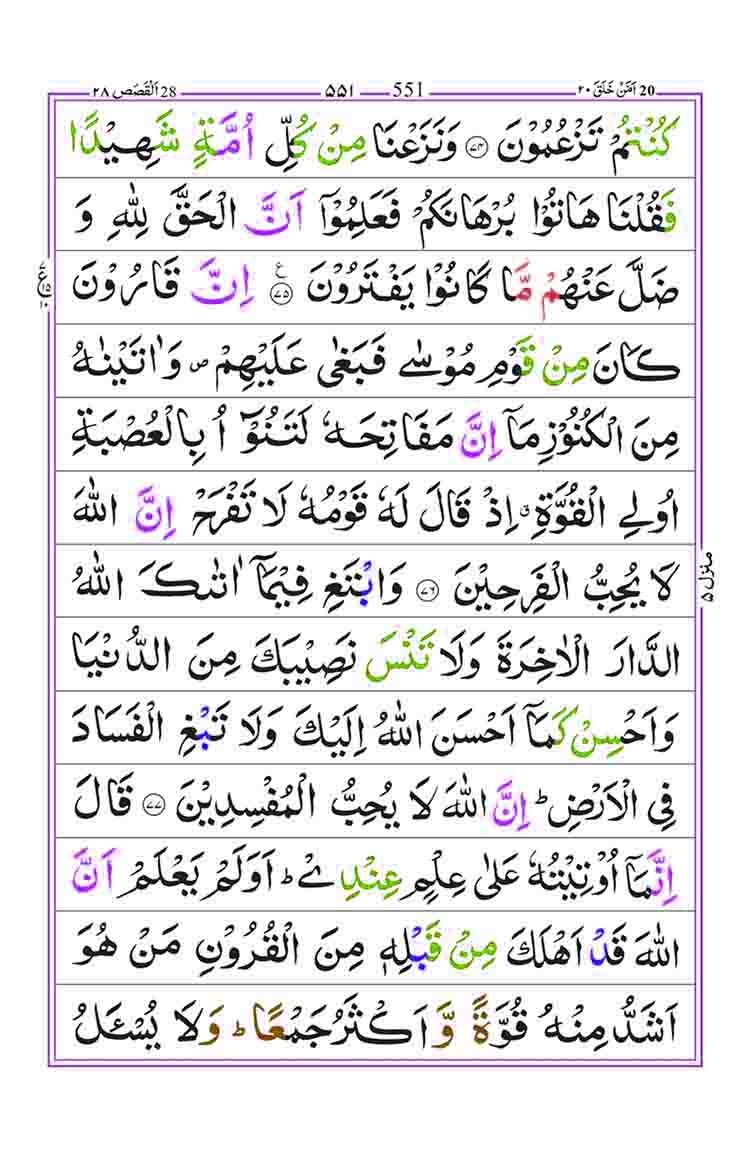 اَمَّنْ خَلَقَ ٢٠ 20 551 ۵۵۱ اَلْقَصَص ٢٨ 28
كُنْتُمْ تَزْعُمُوْنَ ﴿۷۴﴾ وَنَزَعْنَا مِنْ كُلِّ اُمَّةٍ شَهِيْدًا
فَقُلْنَا هَاتُوْا بُرْهَانَكُمْ فَعَلِمُوْٓا اَنَّ الْحَقَّ لِلّٰهِ وَ
ضَلَّ عَنْهُمْ مَّا كَانُوْا يَفْتَرُوْنَ ﴿۷۵﴾ ع اِنَّ قَارُوْنَ
كَانَ مِنْ قَوْمِ مُوْسٰى فَبَغٰى عَلَيْهِمْ ۪ وَاٰتَيْنٰهُ
مِنَ الْكُنُوْزِ مَاۤ اِنَّ مَفَاتِحَهٗ لَتَنُوْٓاُ بِالْعُصْبَةِ
اُولِى الْقُوَّةِ ۗ اِذْ قَالَ لَهٗ قَوْمُهٗ لَا تَفْرَحْ اِنَّ اللّٰهَ
لَا يُحِبُّ الْفَرِحِيْنَ ﴿۷۶﴾ وَابْتَغِ فِيْمَاۤ اٰتٰىكَ اللّٰهُ
الدَّارَ الْاٰخِرَةَ وَلَا تَنْسَ نَصِيْبَكَ مِنَ الدُّنْيَا
وَاَحْسِنْ كَمَاۤ اَحْسَنَ اللّٰهُ اِلَيْكَ وَلَا تَبْغِ الْفَسَادَ
فِى الْاَرْضِ ؕ اِنَّ اللّٰهَ لَا يُحِبُّ الْمُفْسِدِيْنَ ﴿۷۷﴾ قَالَ
اِنَّمَاۤ اُوْتِيْتُهٗ عَلٰى عِلْمٍ عِنْدِىْ ؕ اَوَلَمْ يَعْلَمْ اَنَّ
اللّٰهَ قَدْ اَهْلَكَ مِنْ قَبْلِهٖ مِنَ الْقُرُوْنِ مَنْ هُوَ
اَشَدُّ مِنْهُ قُوَّةً وَّ اَكْثَرُ جَمْعًا ؕ وَلَا يُسْـَٔلُ
ع
۱۵
۱۰
منزل ۵